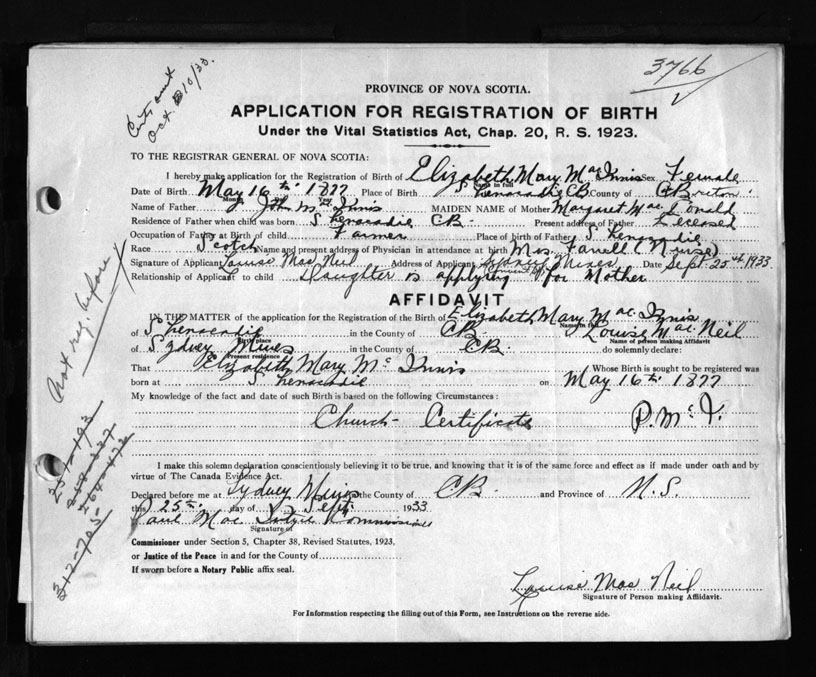 3766
Oct 10/33.
PROVINCE OF NOVA SCOTIA.
APPLICATION FOR REGISTRATION OF BIRTH
Under the Vital Statistics Act, Chap. 20, R. S. 1923.
TO THE REGISTRAR GENERAL OF NOVA SCOTIA:
I hereby make application for the Registration of Birth of Elizabeth Mary Mac Innis Sex Female
Name in full
Date of Birth May 16th 1877 Place of Birth CB County of C Breton
Month
Name of Father John Mc Innis MAIDEN NAME of Mother Margaret Mac Donald
Residence of Father when child was born S CB. Present address of Father Deceased
Occupation of Father at Birth of child Farmer Place of birth of Father S
Race Scotch Name and present address of Physician in attendance at birth Mrs Farrell (Nurse)
Signature of Applicant Louise Mac Neil Address of Applicant Sydney Mines Date Sept 25th 1933
Relationship of Applicant to child Daughter is applying for Mother
AFFIDAVIT
IN THE MATTER of the application for the Registration of the Birth of Elizabeth Mary Mac Innis
Name in full
of S in the County of CB. I Louise Mac Neil
Birth place
Name of person making Affidavit
of Sydney Mines in the County of CB. do solemnly declare:
Present residence
That Elizabeth Mary Mc Innis Whose Birth is sought to be registered was
born at S on May 16th 1877
My knowledge of the fact and date of such Birth is based on the following Circumstances:
Church Certificate P. Mc I.
I make this solemn declaration conscientiously believing it to be true, and knowing that it is of the same force and effect as if made under oath and by
virtue of The Canada Evidence Act.
Declared before me at Sydney Mines the County of CB and Province of N.S.
this 25th day of Sept 1933
Mac
Signature of
Commissioner under Section 5, Chapter 38, Revised Statutes, 1923,
or Justice of the Peace in and for the County of
If sworn before a Notary Public affix seal.
Louise Mac Neil
Signature of Person making Affidavit.
For Information respecting the filling out of this Form, see Instructions on the reverse side.
Not reg. before